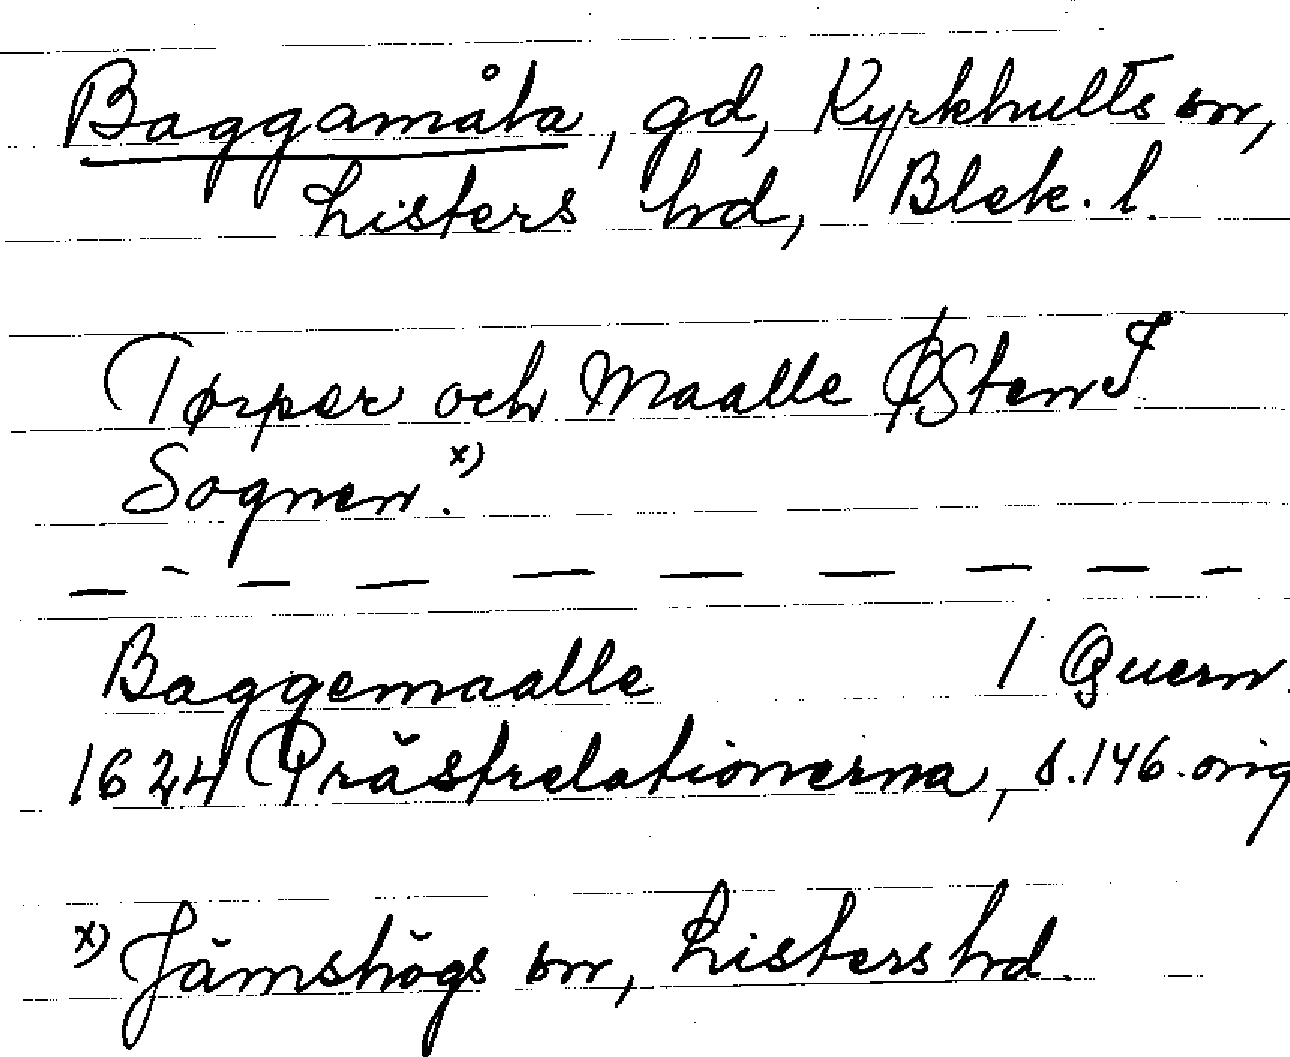 Baggamåla, gd, Kyrkhults sn,
Listers hd, Blek. l.
Tørper och Maalle ØSten J
Sognen. x)
— — — — — — — — — —
Baggemaalle 1 Quern.
1624 Prästrelationerna, s. 146. orig
x) Jämshögs sn, Listers hd.